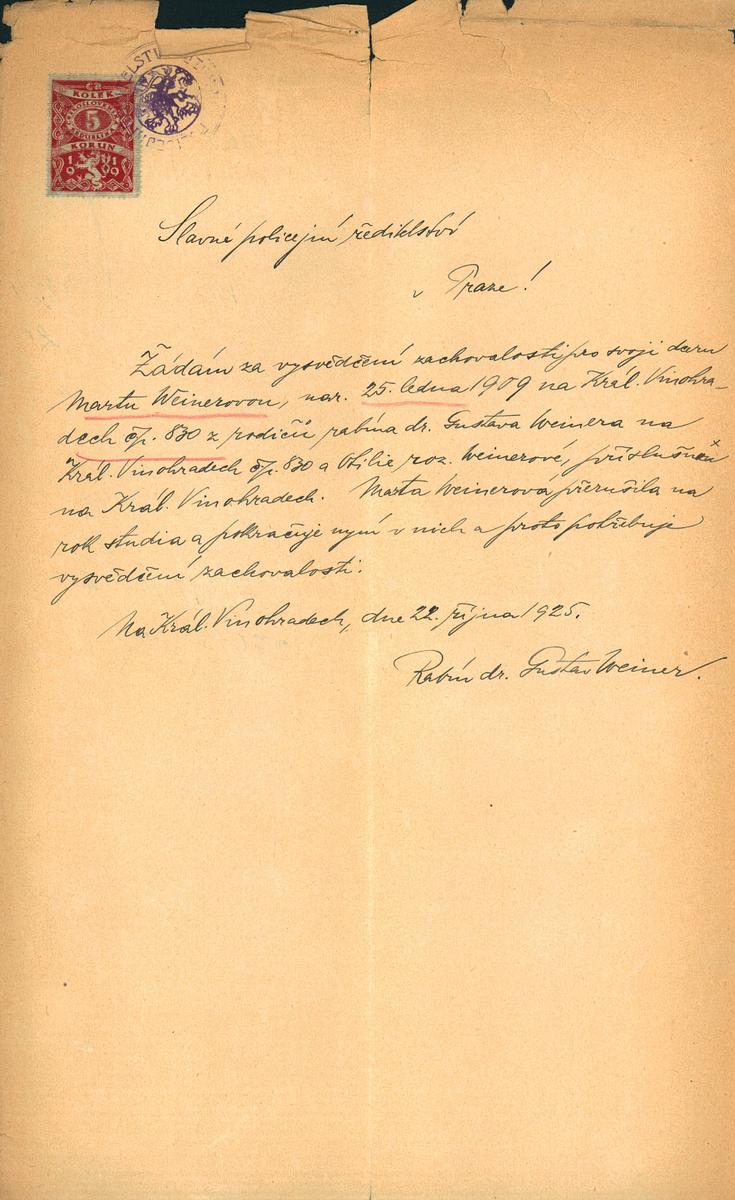 ČR
KOLEK
ČESKOSLOVENSKÁ
5
REPUBLIKA
KORUN
1919
Slavné policejní ředitelství
v Praze!
Žádám za vysvědčení zachovalosti pro svoji dceru
Martu Weinerovou, nar. 25. ledna 1909 na Král. Vinohra-
dech čp. 830 z rodičů rabína dr. Gustava Weinera na
Král. Vinohradech čp. 830 a Otilie roz. Weinerové, příslušnou
na Král. Vinohradech. Marta Weinerová přerušila na
rok studia a pokračuje nyní v nich a proto potřebuje
vysvědčení zachovalosti.
Na Král. Vinohradech, dne 22. října 1925.
Rabín dr. Gustav Weiner.